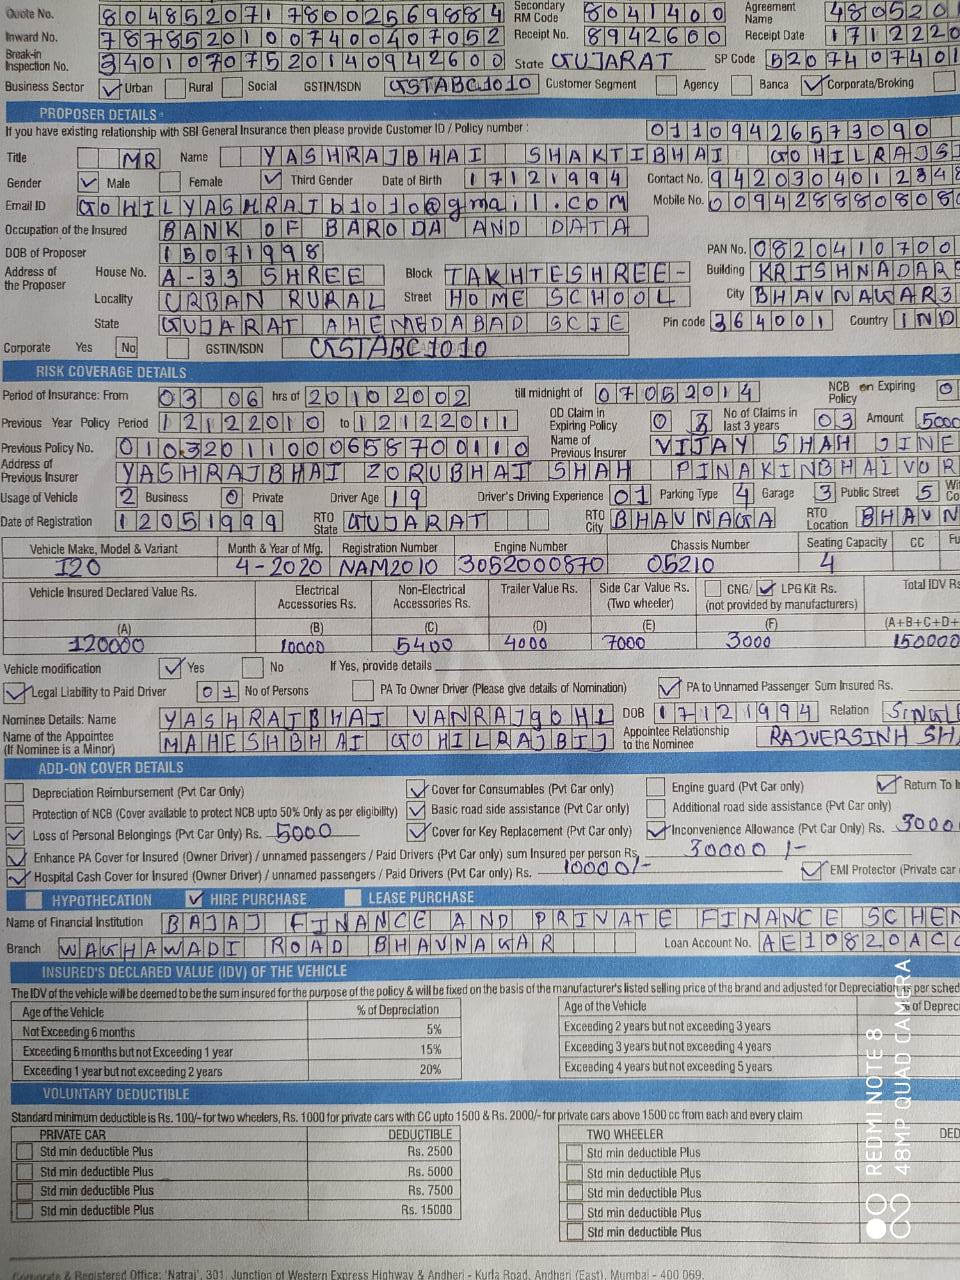 Quote No. 8048520717800256988 4 Secondary RM Code 8041400 Agreement Name 4805201
Inward No. 7878520100740040705 2 Receipt No. 8942600 Receipt Date 1712220
Break-in Inspection No. 3401070752014094260 0 State GUJARAT SP Code 52074074 01
Business Sector Urban Rural Social GSTIN/ISDN GSTABC1010 Customer Segment Agency Banca Corporate/Broking
PROPOSER DETAILS
If you have existing relationship with SBI General Insurance then please provide Customer ID / Policy number : 0110942657309 0
Title MR Name YASHRAJBHAI SHAKTIBHAI GOHILRAJS
Gender Male Female Third Gender Date of Birth 17121994 Contact No. 942030401234 8
Email ID GOHILYASHRAJb1010@gmail.com Mobile No. 009428880808
Occupation of the Insured BANK OF BARODA AND DATA
DOB of Proposer 15071998 PAN No. 0820410700
Address of the Proposer House No. A-33 SHREE Block TAKHTESHREE- Building KRISHNADAR
Locality URBAN RURAL Street HOME SCHOOL City BHAVNAGAR3
State GUJARAT AHEMEDABAD SCIE Pin code 364001 Country IND
Corporate Yes No GSTIN/ISDN GSTABC1010
RISK COVERAGE DETAILS
Period of Insurance: From 03 06 hrs of 20102002 till midnight of 07052014 NCB on Expiring Policy 0
Previous Year Policy Period 12122010 to 12122011 OD Claim in Expiring Policy 0 3 No of Claims in last 3 years 03 Amount 5000
Previous Policy No. 010320110006587001 10 Name of Previous Insurer VIJAY SHAH JINE
Address of Previous Insurer YASHRAJBHAI ZORUBHAI SHAH PINAKINBHAIVOR
Usage of Vehicle 2 Business 0 Private Driver Age 19 Driver's Driving Experience 01 Parking Type 4 Garage 3 Public Street 5
Date of Registration 12051999 RTO State GUJARAT RTO City BHAVNAGA RTO Location BHAVN
Vehicle Make, Model & Variant Month & Year of Mfg. Registration Number Engine Number Chassis Number Seating Capacity CC Fu
I20 4-2020 NAM2010 3052000870 05210 4
Vehicle Insured Declared Value Rs. Electrical Accessories Rs. Non-Electrical Accessories Rs. Trailer Value Rs. Side Car Value Rs. (Two wheeler) CNG/ LPG Kit Rs. (not provided by manufacturers) Total IDV Rs
(A) (B) (C) (D) (E) (F) (A+B+C+D+
120000 10000 5400 4000 7000 3000 150000
Vehicle modification Yes No If Yes, provide details
Legal Liability to Paid Driver 01 No of Persons PA To Owner Driver (Please give details of Nomination) PA to Unnamed Passenger Sum Insured Rs.
Nominee Details: Name YASHRAJBHAI VANRAJGOHI DOB 17121994 Relation SINGL
Name of the Appointee (If Nominee is a Minor) MAHESHBHAI GOHILRAJBIJ Appointee Relationship to the Nominee RAJVERSINH SH
ADD-ON COVER DETAILS
Depreciation Reimbursement (Pvt Car Only) Cover for Consumables (Pvt Car only) Engine guard (Pvt Car only) Return To In
Protection of NCB (Cover available to protect NCB upto 50% Only as per eligibility) Basic road side assistance (Pvt Car only) Additional road side assistance (Pvt Car only)
Loss of Personal Belongings (Pvt Car Only) Rs. 5000 Cover for Key Replacement (Pvt Car only) Inconvenience Allowance (Pvt Car only) Rs. 3000
Enhance PA Cover for Insured (Owner Driver) / unnamed passengers / Paid Drivers (Pvt Car only) sum Insured per person Rs. 30000 /-
Hospital Cash Cover for Insured (Owner Driver) / unnamed passengers / Paid Drivers (Pvt Car only) Rs. 10000/- EMI Protector (Private car
HYPOTHECATION HIRE PURCHASE LEASE PURCHASE
Name of Financial Institution BAJAJ FINANCE AND PRIVATE FINANCE SCHEM
Branch WAGHAWADI ROAD BHAVNAGAR Loan Account No. AE10820AC
INSURED'S DECLARED VALUE (IDV) OF THE VEHICLE
The IDV of the vehicle will be deemed to be the sum insured for the purpose of the policy & will be fixed on the basis of the manufacturer's listed selling price of the brand and adjusted for Depreciation as per sched
Age of the Vehicle % of Depreciation Age of the Vehicle % of Deprec
Not Exceeding 6 months 5% Exceeding 2 years but not exceeding 3 years
Exceeding 6 months but not Exceeding 1 year 15% Exceeding 3 years but not exceeding 4 years
Exceeding 1 year but not exceeding 2 years 20% Exceeding 4 years but not exceeding 5 years
VOLUNTARY DEDUCTIBLE
Standard minimum deductible is Rs. 100/- for two wheelers, Rs. 1000 for private cars with CC upto 1500 & Rs. 2000/- for private cars above 1500 cc from each and every claim
PRIVATE CAR DEDUCTIBLE TWO WHEELER DED
Std min deductible Plus Rs. 2500 Std min deductible Plus
Std min deductible Plus Rs. 5000 Std min deductible Plus
Std min deductible Plus Rs. 7500 Std min deductible Plus
Std min deductible Plus Rs. 15000 Std min deductible Plus
Std min deductible Plus
Corporate & Registered Office: 'Natraj', 301, Junction of Western Express Highway & Andheri - Kurla Road, Andheri (East), Mumbai - 400 069.
REDMI NOTE 8
48MP QUAD CAMERA